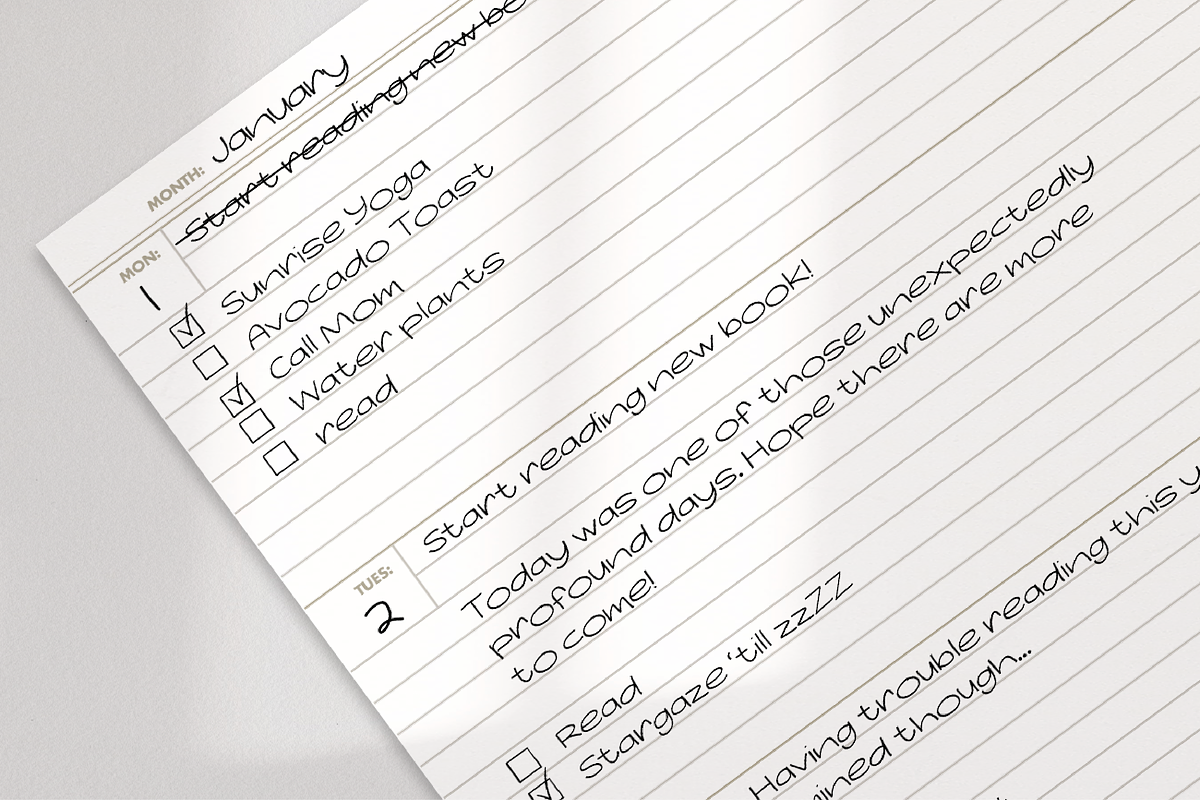 MONTH: January
Start reading new
MON:
1
Sunrise Yoga
Avocado Toast
Call Mom
Water plants
read
TUES:
2
Start reading new book!
Today was one of those unexpectedly
profound days. Hope there are more
to come!
Read
Stargaze 'till zzZZ
Having trouble reading this
though...